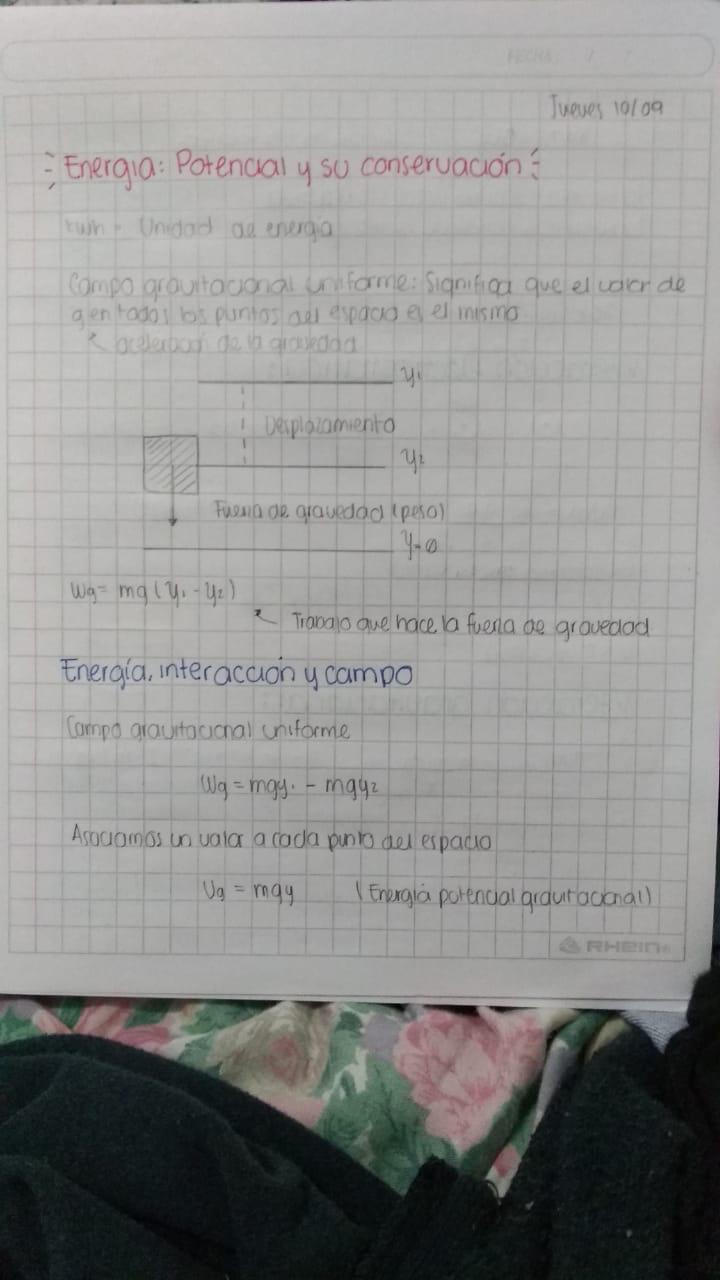 FECHA / /
Jueves 10/09
Energía: Potencial y su conservación
kwh = Unidad de energía
Campo gravitacional uniforme: Significa que el valor de
g en todos los puntos del espacio es el mismo
aceleración de la gravedad
y1
Desplazamiento
y2
Fuerza de gravedad (peso)
y=0
Wg= mg(y1 - y2)
Trabajo que hace la fuerza de gravedad
Energía, interacción y campo
Campo gravitacional uniforme
Wg = mgy1 - mgy2
Asociamos un valor a cada punto del espacio
Ug = mgy (Energía potencial gravitacional)
RHEIN